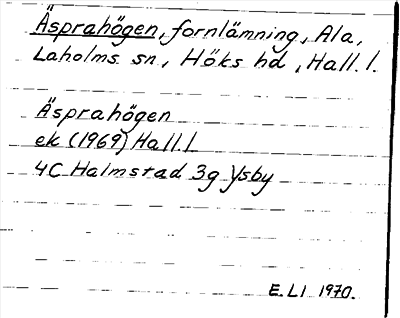 Äsprahögen, fornlämning, Ala,
Laholms sn, Höks hd, Hall.l.
Äsprahögen
ek (1969) Hall.l
4C Halmstad 3g Ysby
E.LI 1970.